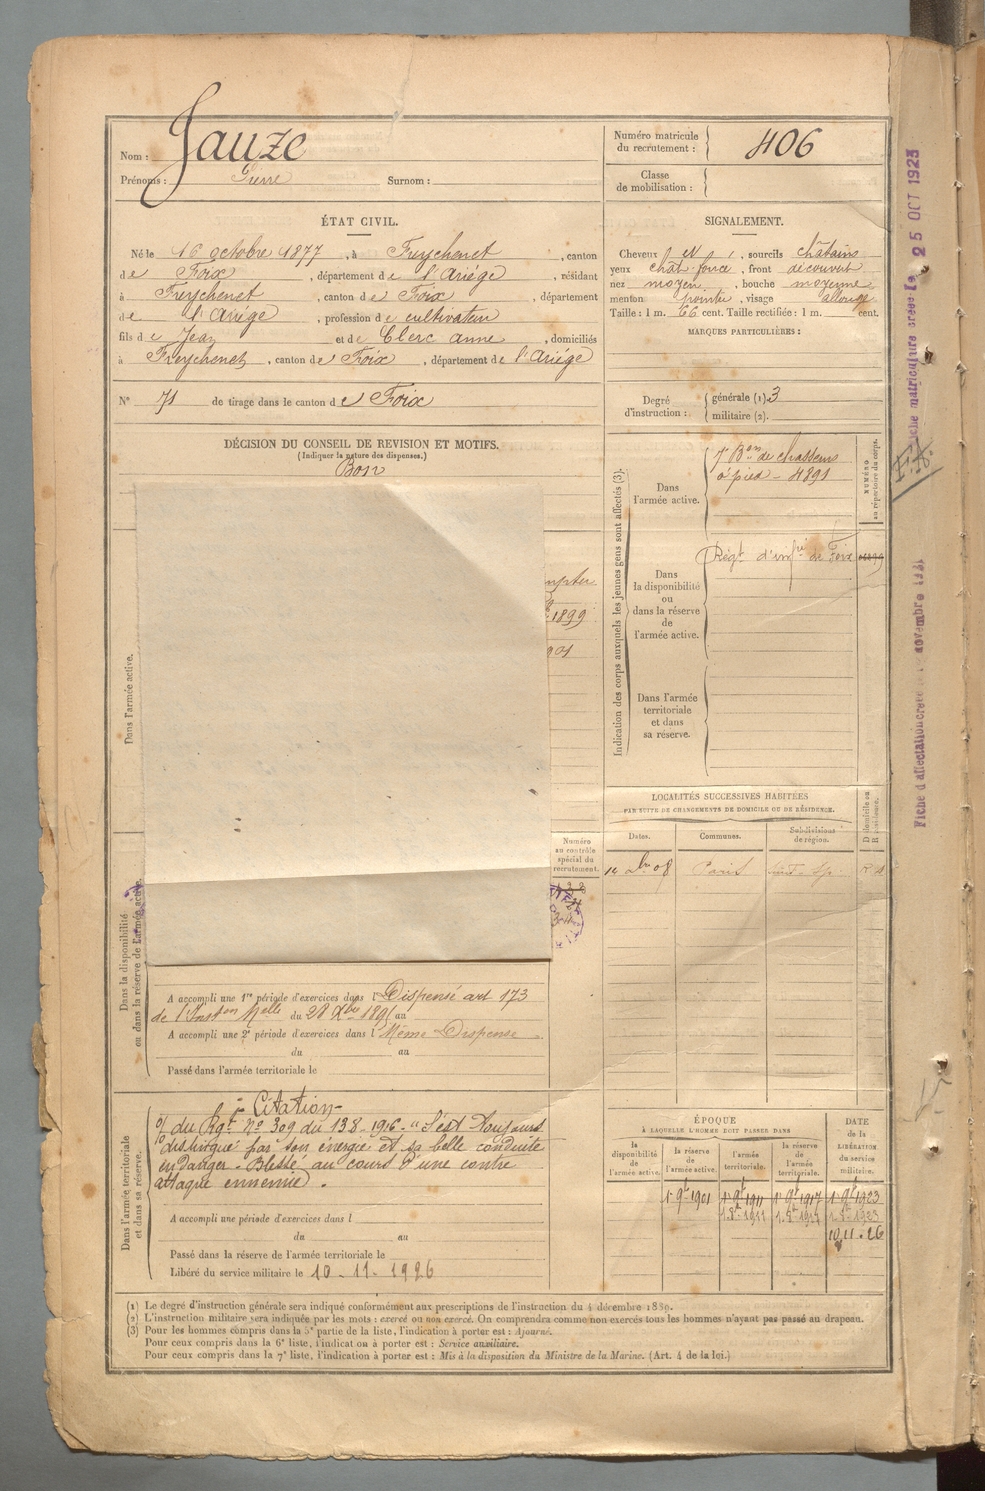 Nom : Jauze
Prénoms : Pierre Surnom :
Numéro matricule du recrutement : 406
Classe de mobilisation :
ÉTAT CIVIL.
Né le 16 octobre 1877, à Freychenet, canton
de Foix, département de l'Ariége, résidant
à Freychenet, canton de Foix, département
de l'Ariége, profession de cultivateur
fils de Jean et de Clerc Anne, domiciliés
à Freychenet, canton de Foix, département de l'Ariége
N° 71 de tirage dans le canton de Foix
SIGNALEMENT.
Cheveux et, sourcils châtains
yeux chât. foncé, front découvert
nez moyen, bouche moyenne
menton pointu, visage allongé
Taille : 1 m. 66 cent. Taille rectifiée : 1 m. cent.
MARQUES PARTICULIÈRES :
Degré d'instruction : générale (1). 3
militaire (2).
DÉCISION DU CONSEIL DE REVISION ET MOTIFS.
(Indiquer la nature des dispenses.)
Bon
1899
Dans l'armée active.
Indication des corps auxquels les jeunes gens sont affectés (3).
NUMÉRO au répertoire du corps.
Dans l'armée active.
7e Bon de chasseurs
à pied - 4891
Dans la disponibilité ou dans la réserve de l'armée active.
Régt d'infie de Foix
Dans l'armée territoriale et dans sa réserve.
LOCALITÉS SUCCESSIVES HABITÉES
PAR SUITE DE CHANGEMENTS DE DOMICILE OU DE RÉSIDENCE.
Dates. Communes. Subdivisions de région. Domicile ou Résidence.
08 Paris
Numéro au contrôle spécial du recrutement.
Dans la disponibilité ou dans la réserve de l'armée active.
A accompli une 1re période d'exercices dans l Dispensé art 173
de l'Inston Melle du 28 Xbre 189 au
A accompli une 2e période d'exercices dans l Même Dispense
du au
Passé dans l'armée territoriale le
Dans l'armée territoriale et dans sa réserve.
- Citation -
du Rgt No 309 du 13 8 - 1916 - "S'est toujours
distingué par son énergie et sa belle conduite
en danger - Blessé au cours d'une contre
attaque ennemie.
A accompli une période d'exercices dans l
du au
Passé dans la réserve de l'armée territoriale le
Libéré du service militaire le 10 - 11 - 1926
ÉPOQUE
À LAQUELLE L'HOMME DOIT PASSER DANS
DATE de la LIBÉRATION du service militaire.
la disponibilité de l'armée active. la réserve de l'armée active. l'armée territoriale. la réserve de l'armée territoriale.
1er 9bre 1901 1er 9bre 1911 1er 9bre 1917 1er 9bre 1923
10.11.26
(1) Le degré d'instruction générale sera indiqué conformément aux prescriptions de l'instruction du 4 décembre 1889.
(2) L'instruction militaire sera indiquée par les mots : exercé ou non exercé. On comprendra comme non exercés tous les hommes n'ayant pas passé au drapeau.
(3) Pour les hommes compris dans la 5e partie de la liste, l'indication à porter est : Ajourné.
Pour ceux compris dans la 6e liste, l'indication à porter est : Service auxiliaire.
Pour ceux compris dans la 7e liste, l'indication à porter est : Mis à la disposition du Ministre de la Marine. (Art. 4 de la loi.)
matriculaire créée le 25 OCT 1923
Fiche d'affectation créée novembre